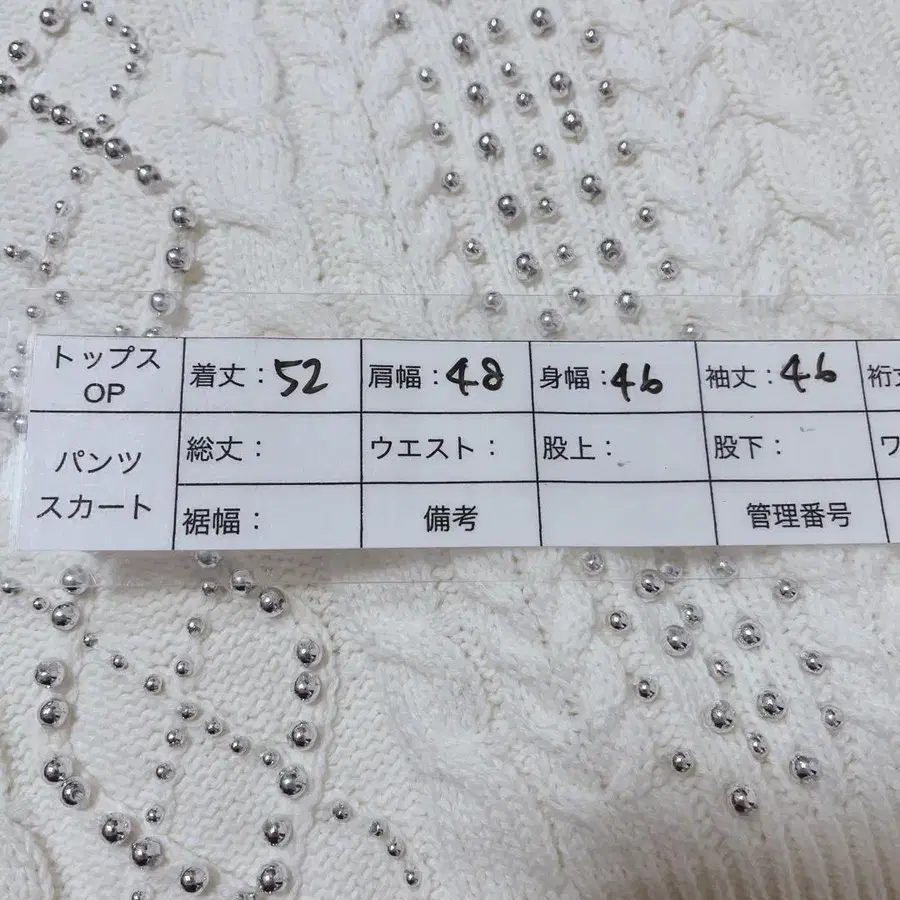 トップス OP 着丈：52 肩幅：48 身幅：46 袖丈：46 裄丈
パンツ スカート 総丈： ウエスト： 股上： 股下： ワ
裾幅： 備考 管理番号